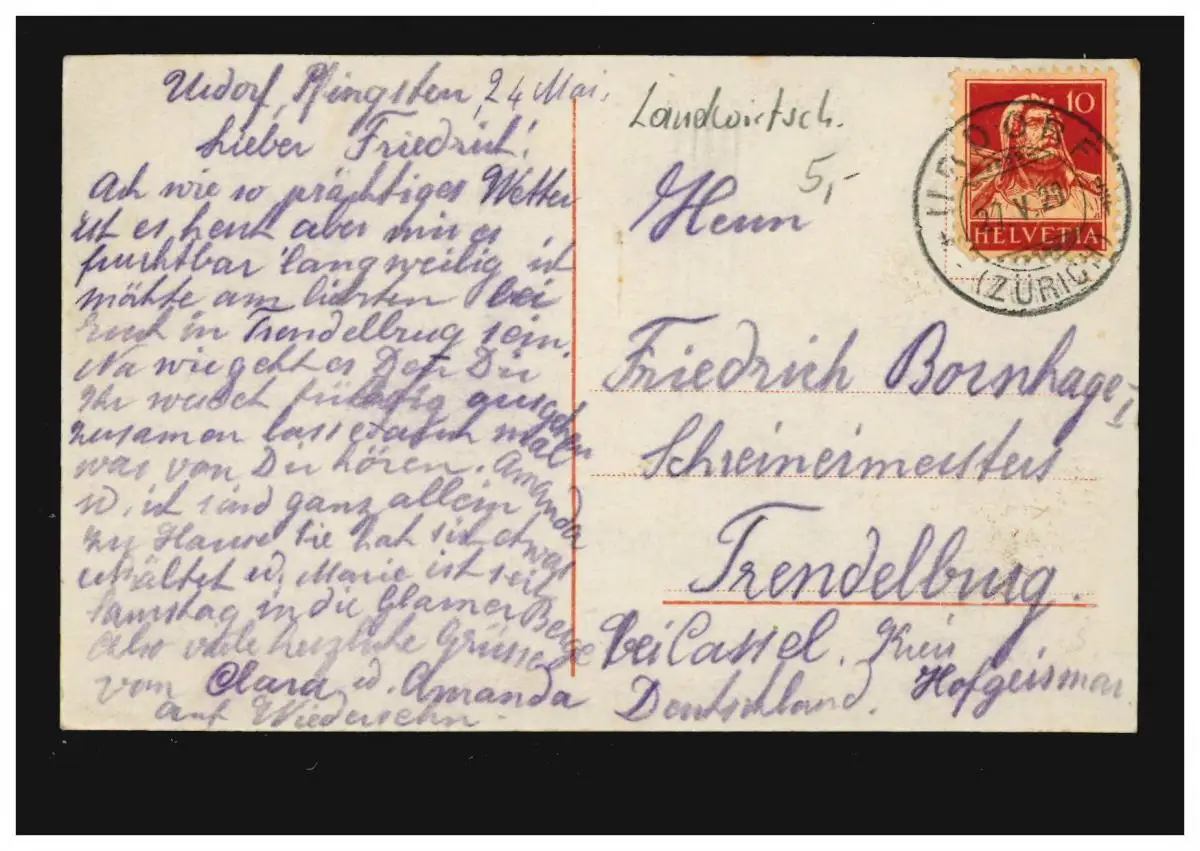 Urdorf, Pfingsten, 24 Mai,
Lieber Friedrich!
Ach wie so prächtiges Wetter
ist es heut aber mir es
furchtbar langweilig ich
möchte am liebsten bei
Euch in Trendelbrug sein.
Na wie geht es Dir
Ihr werdet
zusamen lasse doch mal
was von Dir hören. Amanda
u. ich sind ganz allein
zu Hause sie hat sich etwas
erkältet u. Marie ist seit
Samstag in die Glarner Berge
Also viele herzliche Grüsse
von Clara u. Amanda
auf Wiedersehn.
Landwirtsch.
5,-
Herrn
Friedrich Bornhage
I
Schreinermeisters
Trendelburg.
bei Cassel. Kreis
Hofgeismar
Deutschland.
10
HELVETIA
URDORF
27.V.20
(ZÜRICH)